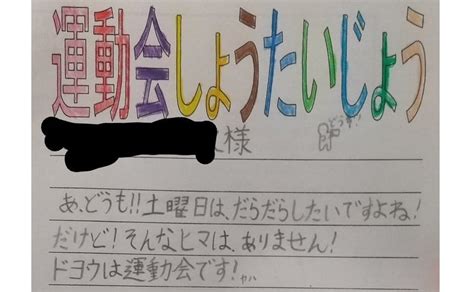 運動会しょうたいじょう
様
どうぞ!!
あ、どうも!!土曜日は、だらだらしたいですよね!
だけど!そんなヒマは、ありません!
ドヨウは運動会です!